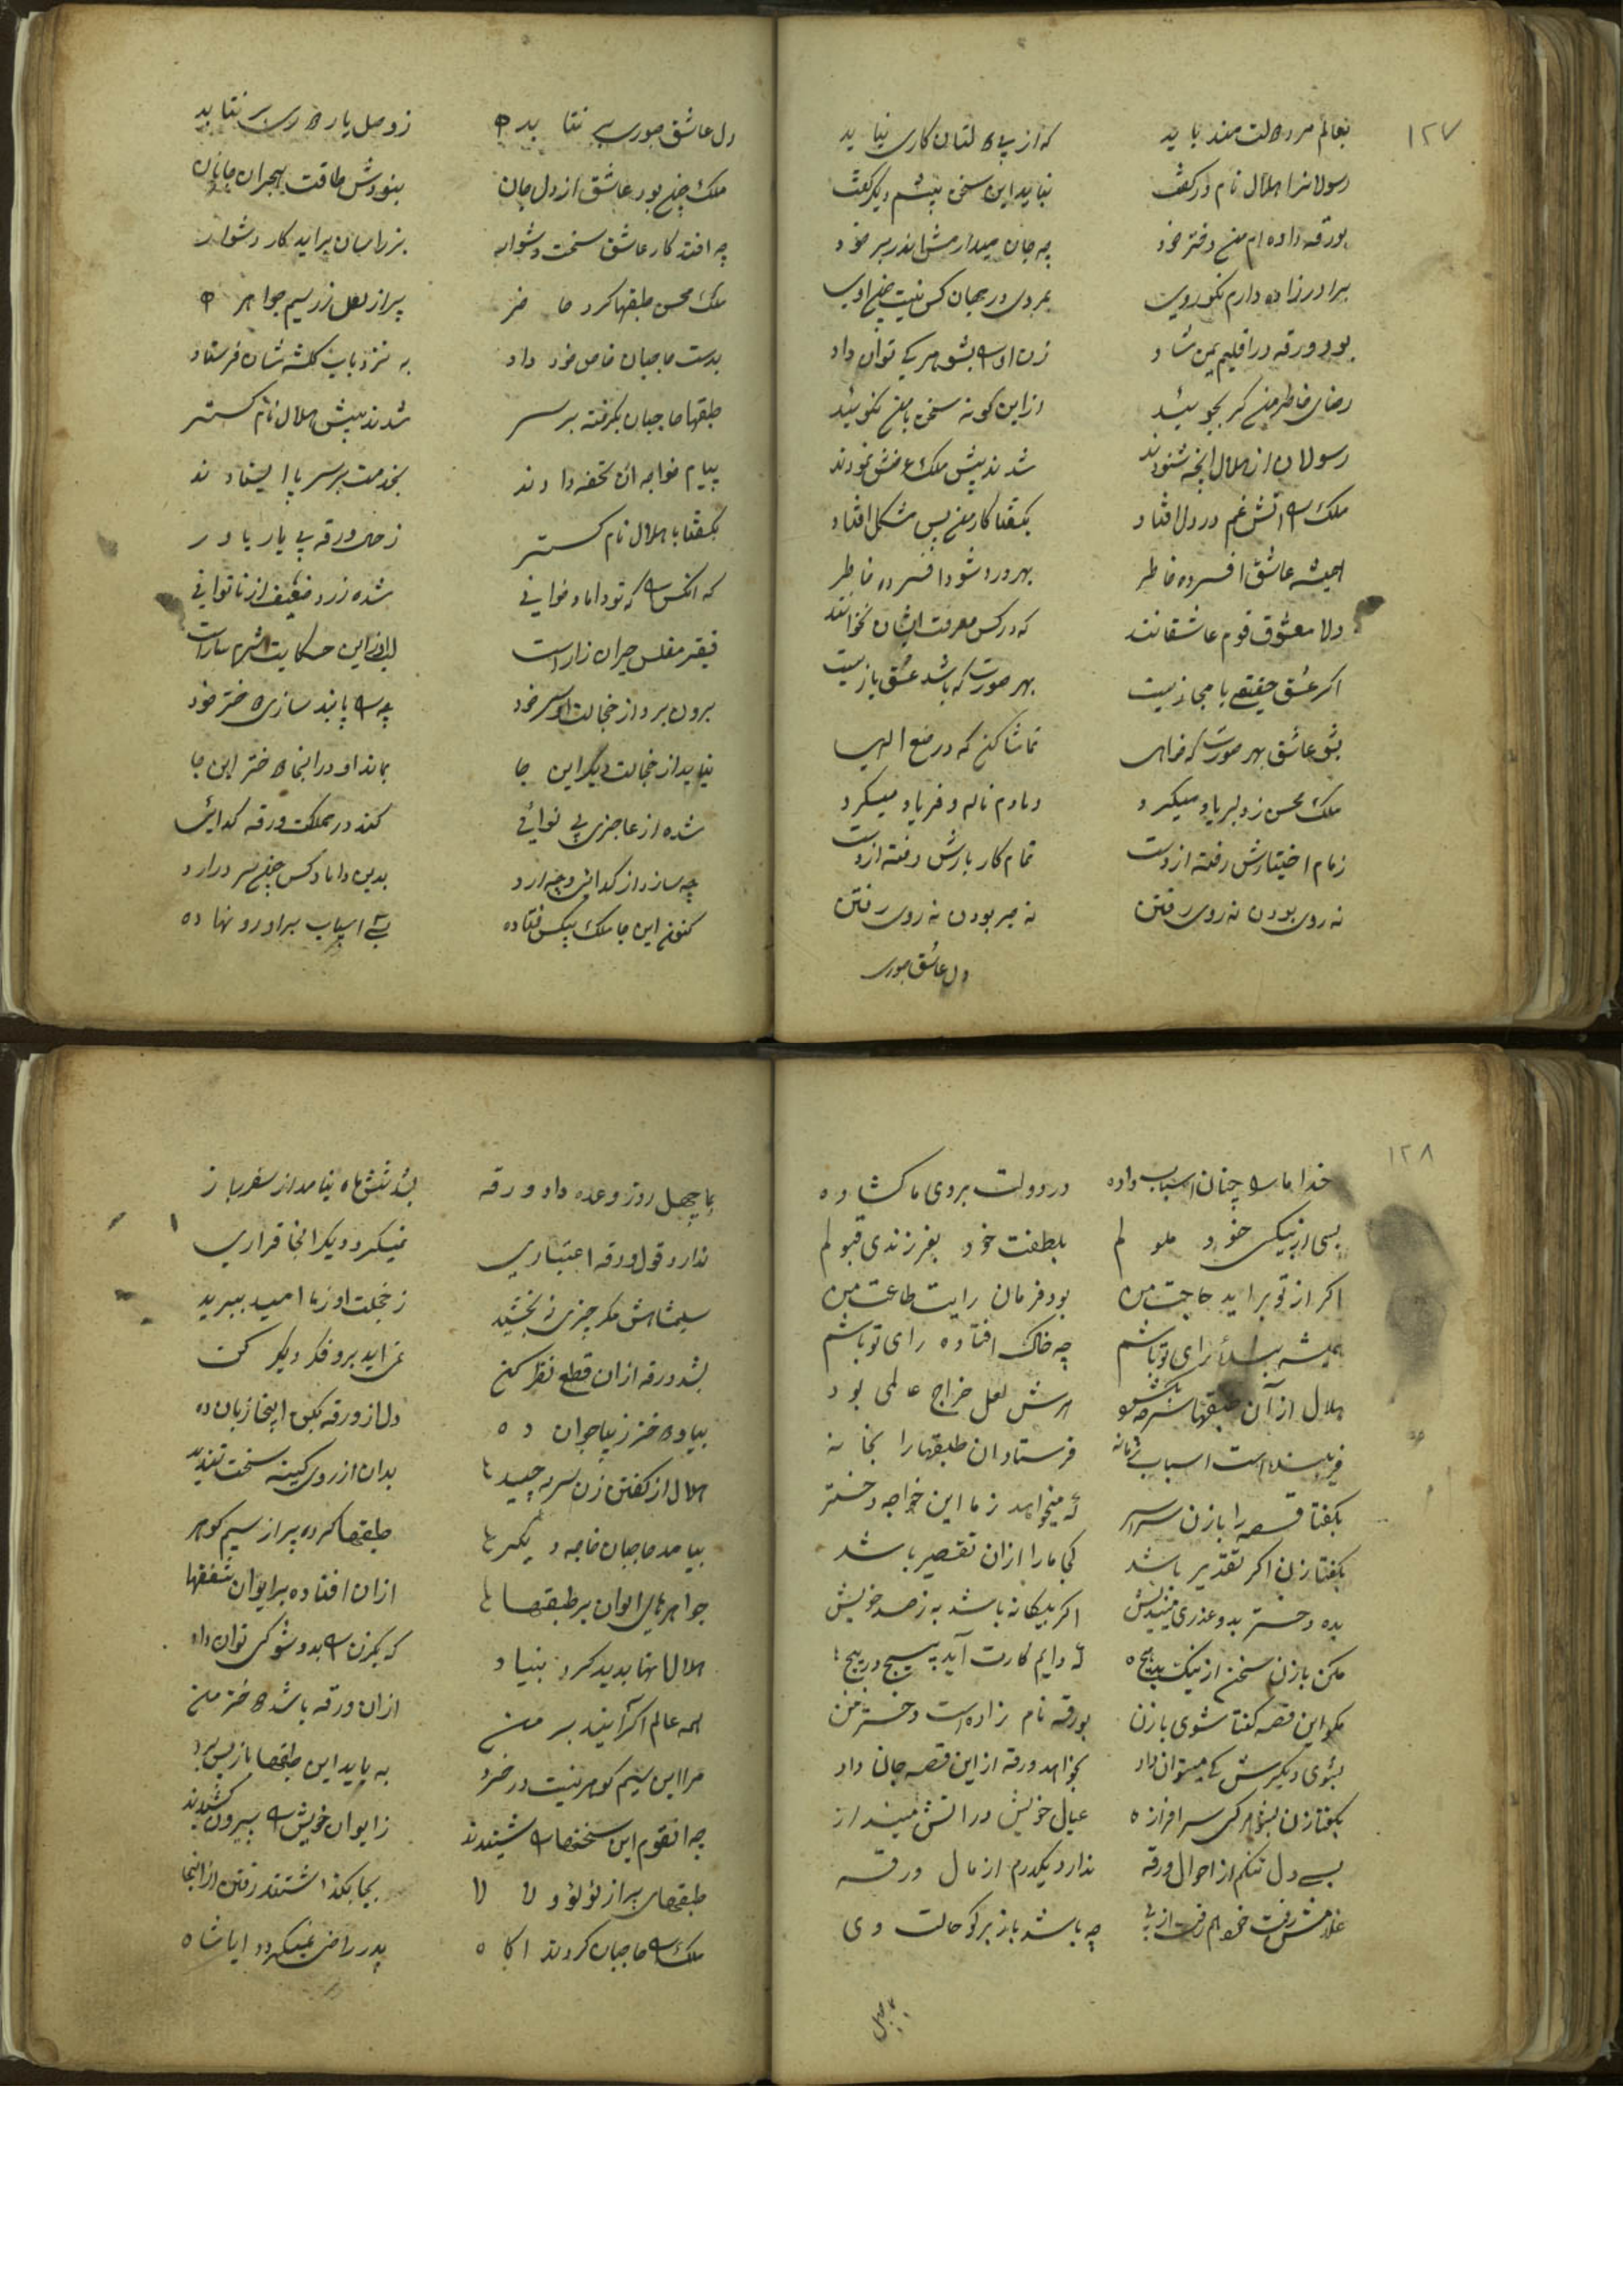 ۱۲۷
بعالم مرد دولت مند باید که از بی دولتان کاری نیاید
رسولانرا هلال نام ور گفت نباید این سخن پیشم دگر گفت
بورقه داده ام من دختر خود چه جان میدارمش اندر بر خود
برادرزاده دارم نکوروی بمردی در جهان کس نیست چون اوی
بود ورقه در اقلیم یمن شاد زن او را بشوهر کی توان داد
رضای خاطر من گر بجوئید ازین گونه سخن با من نگوئید
رسولان از هلال آنچه شنودند شدند پیش ملک عرضش نمودند
ملک را آتش غم در دل افتاد بگفتا کار من بس مشکل افتاد
همیشه عاشق افسرده خاطر بهر درد شود افسرده خاطر
دلا معشوق قوم عاشقانند که در کس معرفت ایشان نخوانند
اگر عشق حقیقی یا مجازیست بهر صورت که باشد عشق بازیست
بشو عاشق بهر صورت که خواهی تماشا کن که در صنع الهی
ملک محسن ز دلبر یاد میکرد دمادم ناله و فریاد میکرد
زمام اختیارش رفته از دست تمام کار بارش رفته از دست
نه روی بودن نه روی رفتن نه صبر بودن نه روی رفتن
دل عاشق صوری
دل عاشق صوری بر نتابد ز وصل یار دوری بر نتابد
ملک چون بود عاشق از دل جان بنودش طاقت هجران جانان
چه افتد کار عاشق سخت دشوار بزر آسان براید کار دشوار
ملک محسن طبقها کرد حاضر پر از لعل زر سیم جواهر
بدست حاجبان خاص خود داد به نزد باب گلشه شان فرستاد
طبقها حاجبان بگرفته بر سر شدند پیش هلال نام گستر
پیام خواجه آن تحفه دادند بخدمت بر سر پا ایستادند
بگفتا با هلال نام گستر ز حال ورقه بی یار یاور
که آنکس را که تو داماد خوانی شده زرد ضعیف از ناتوانی
فقیر مفلس حیران زار است
برون برد از خجالت او سر خود چه را پابند سازی دختر خود
نیاید از خجالت دیگر این جا بماند او در آنجا دختر این جا
شده از عاجزی بی نوائی کند در مملکت ورقه گدائی
چه سازد از گدائی وجه آرد بدین داماد کس چون سر درآرد
کنون این جا ملک بیکس فتاده پی اسباب بر او رو نهاده
۱۲۸
خدا ما را چنان اسباب داده در دولت بروی ما گشاده
بسی از نیکی خود ملولم بلطفت خود بفرزندی قبولم
اگر از تو براید حاجت من بود فرمان رایت طاعت من
همیشه رای تو باشم چه خاک افتاده رای تو باشم
هلال از آن طبقها هرش لعل خراج عالمی بود
فرستاد آن طبقها را بخانه
بگفتا قصه را با زن سراسر که میخواهد ز ما این خواجه دختر
بگفتا زن اگر تقدیر باشد کی ما را ازان تقصیر باشد
بده دختر بدو عذری میندیش اگر بیگانه باشد به ز صد خویش
مکن با زن سخن از نیک بد هیچ که دایم کارت آید پیچ در پیچ
مگو این قصه گفتا شوی با زن بورقه نام زاده است دختر من
بشوی دیگرش کی میتوان داد بخواهد ورقه از این قصه جان داد
بگفتا زن بشوهر کی سرافراز عیال خویش در آتش مینداز
بسی دل تنگم از احوال ورقه ندارد یکدرم از مال ورقه
غلامش رفت خواهم رفت از پی چه باشد باز برگو حالت وی
بما چهل
بما چهل روز وعده داد ورقه بشد شش ماه نیامد از سفر باز
ندارد قول ورقه اعتباری نمیگردد دیگر آنجا قراری
سلیمشاهش مگر چیزی نبخشید ز خجلت او ز ما امید ببرید
بشد ورقه ازان قطع نظر کن نمی آید برو فکر دیگر کن
بیا و دختر زیبا جوان ده دل از ورقه بکن اینجا زبان ده
هلال از گفتن زن سر به پیچید بدان از روی کینه سخت تندید
بیامد حاجبان خاجه دیگر طبقها کرده پر از سیم گوهر
جواهرهای الوان بر طبقها ازان افتاده بر ایوان شفقها
هلالا بدید کرد بنیاد که یکزن را بدو شو کی توان داد
همه عالم اگر آیند بر من ازان ورقه باشد دختر من
مرا این سیم گوهر نیست در خرد به باید این طبقها باز پس برد
چه آنقوم این سخنها را شنیدند ز ایوان خویش را بیرون کشیدند
طبقهای پر از لؤلؤ و لالا بجا بگذاشتند رفتن از آنجا
ملک را حاجبان کردند آگاه پدر راضی نمیگردد ایا شاه